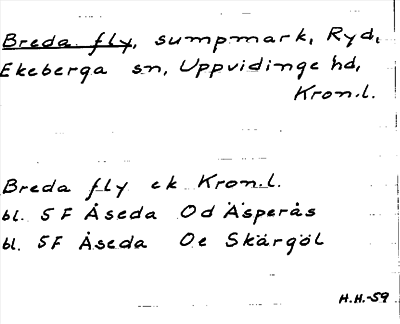 Breda fly, sumpmark, Ryd,
Ekeberga sn, Uppvidinge hd,
Kron.l.
Breda fly ek Kron.l.
bl. 5F Åseda 0d Äsperås
bl. 5F Åseda 0e Skärgöl
H.H.-59